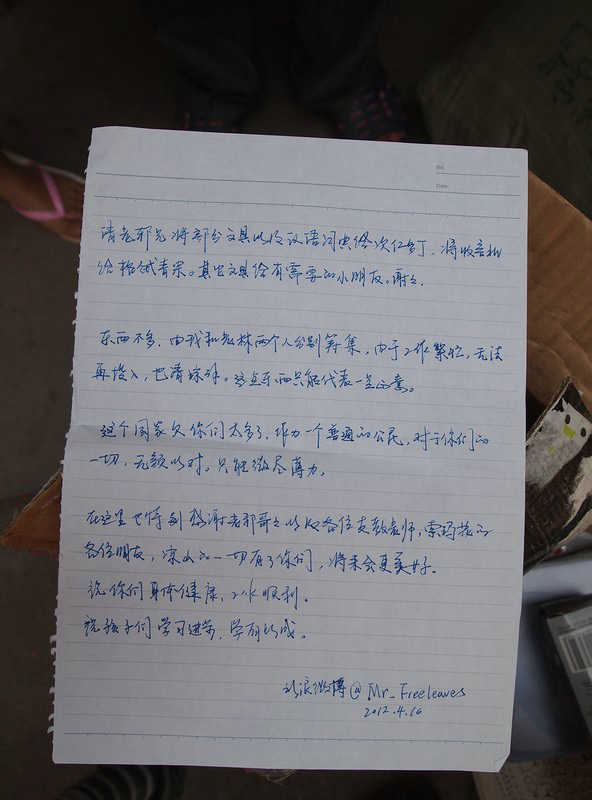 No.
Date.
请老邪先将部分文具以及汉语词典给次仁多丁,将收音机
给格绒青宗。其它文具给有需要的小朋友。谢谢。
东西不多,由我和老林两个人分别筹集,由于工作繁忙,无法
再投入,也请谅解。这点东西只能代表一点心意。
这个国家欠你们太多了,作为一个普通的公民,对于你们的
一切,无颜以对。只能微尽薄力。
在这里也特别感谢老邪哥哥以及各位支教老师,索玛花的
各位朋友,凉山的一切有了你们,将来会更美好。
祝你们身体健康,工作顺利。
祝孩子们学习进步,学有所成。
新浪微博@Mr_Freeleaves
2012.4.16